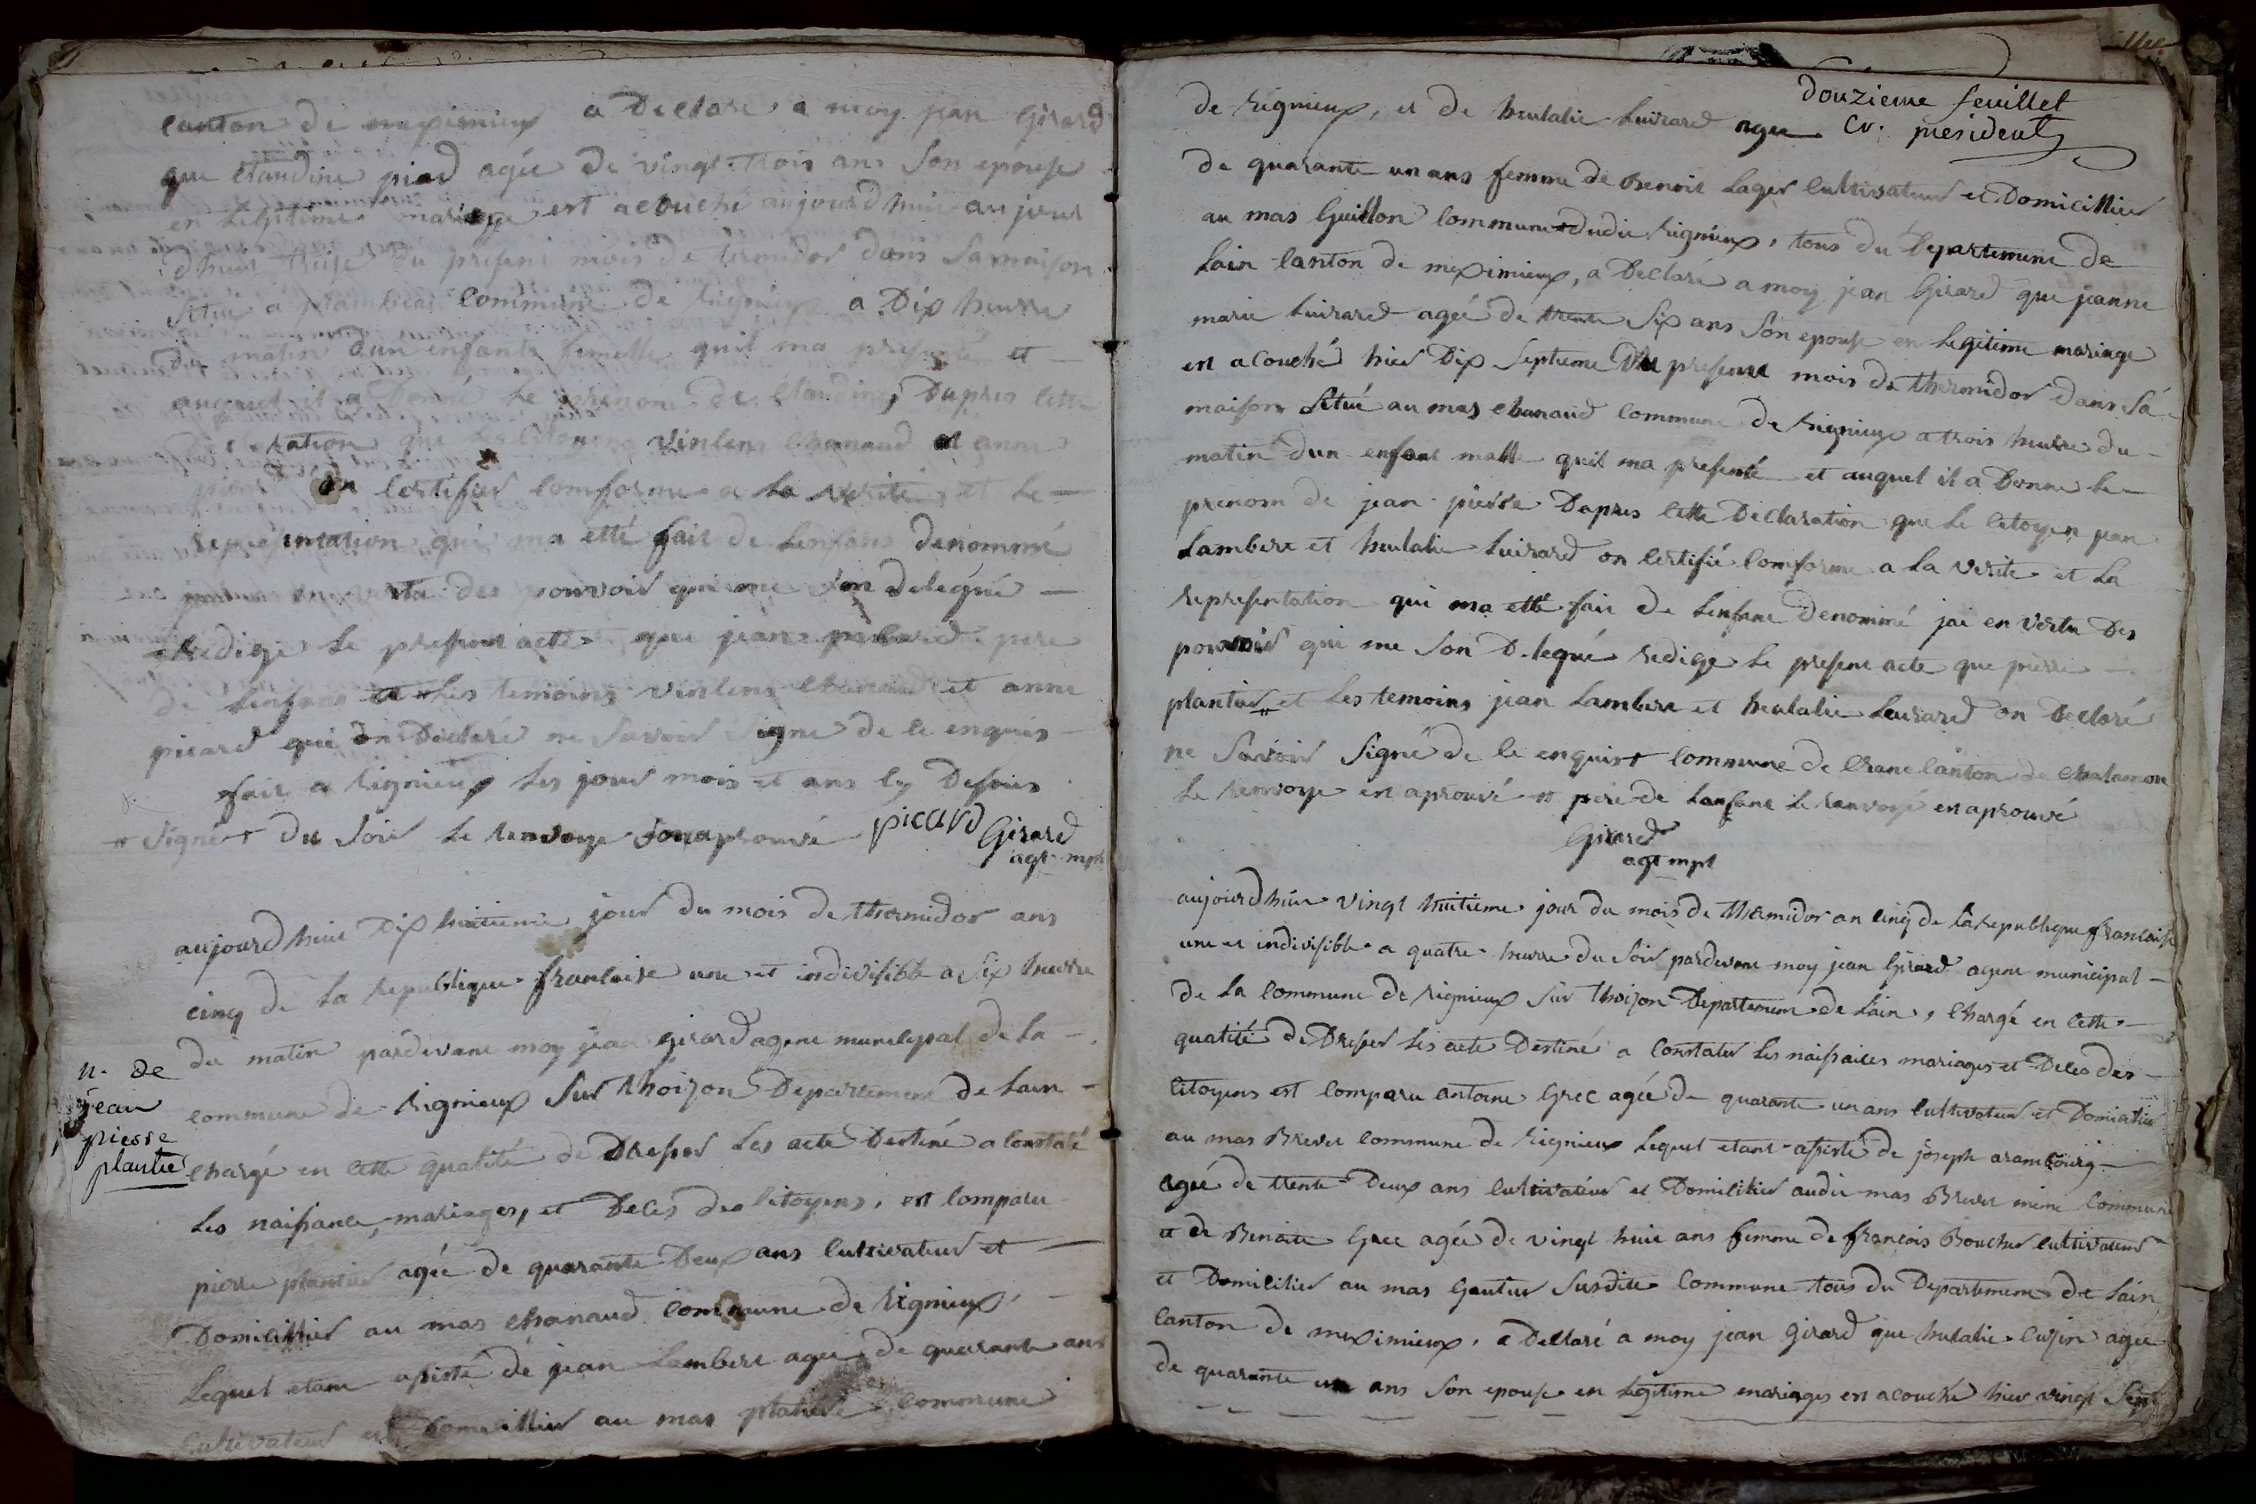 canton de meximieux a Declaré a moy jean Girard
que Claudine picard agée de vingt trois ans son epouse
en Legitime mariage est acouché aujourdhui au jour
dhuit treize du present mois de termidor dans sa maison
Situé a commune de rignieux a Dix heurre
du matin dun enfant femelle quil ma presenté et
auquel il a Donné le prenom de Claudine, Dapres cette
que les Citoyens vinlens Chanaud et anne
picard on Certifier comforme a la verité, et le
representation qui ma etté fait de Lenfans denommé
vertu des pouvoir qui me son delegué
Redigé le present acte que jean picard pere
de Lenfans et Les temoins vinlens Chanaud et anne
picard qui on Declaré ne savoir signe de le enquis
fait a rignieux les jour mois et ans cy Desus
# signé + du Soir le renvoye son aprouvé picard Girard
agt mpl
aujourdhuit Dix huitieme jour du mois de thermidor ans
cinq de la republique francaise une et indivisible a six heurre
du matin pardevant moy jean girard agent municipal de la
commune de Rignieux sur thoizon Departement de Lain
n. de
jean
pierre
plantié
chargé en cette qualité de Dresser Les acte Destiné a Constaté
les naissance, mariages, et Deces des Citoyens, est Comparu
pierre plantier agée de quarante Deux ans Cultivateur et
Domicillier au mas chanaud commune de Rignieux,
Lequel etant asisté de jean Lambert agée de quarante ans
Cultivateur et Domicillier au mas commune
douzieme feuillet
cv. president
de Rignieux, et de heulalie Luirard agée
de quarante un ans femme de Benoit Lager Cultivateur et Domicillier
au mas Guillon commune dudit Rignieux, tous du Departement de
Lain Canton de meximieux, a Declaré a moy jean Girard que jeanne
marie Luirard agée de trente six ans son epouse en Legitime mariage
est acouché hier Dix septieme Du present mois de thermidor dans sa
maison situé au mas chanaud commune de Rignieux a trois heurre du
matin dun enfant malle quil ma presenté et auquel il a Donné le
prenom de jean pierre Dapres cette Declaration que le Citoyen jean
Lambert et heulalie Luirard on Certifié Comforme a la verité et la
representation qui ma etté fait de Lenfant denommé jai en vertu Des
pouvoir qui me son Delegué redigé le present acte que pierre
plantier # et Les temoins jean Lambert et heulalie Leurard on Declaré
ne savoir signé de le enquis + Commune de Crane Canton de Chalamon
le renvoye en aprouvé # pere de Lenfant le renvoyé en aprouvé
Girard
agt mpl
aujourdhuit vingt huitieme jour du mois de thermidor an cinq de la republique francaise
une et indivisible a quatre heurre du soir pardevant moy jean Girard agent municipal
de la Commune de Rignieux sur thoizon Departement de Lain, Chargé en cette
qualité de Dresser les acte Destiné a Constater les naissances mariages et Deces des
Citoyens est Comparu antoine Grec agée de quarante un ans Cultivateur et Domicillier
au mas Brevet Commune de Rignieux Lequel etant asisté de joseph arambourg
agée de trente Deux ans Cultivateur et Domicilier audit mas Brevet meme Commune
et de Benoite Grec agée de vingt huit ans femme de francois Boucher Cultivateur
et Domicilier au mas Gautier susdite Commune tous du Departement de Lain
Canton de meximieux, a Declaré a moy jean Girard que hulalie Cusin agée
de quarante un ans son epouse en Legitime mariages est acouché hier vingt sept